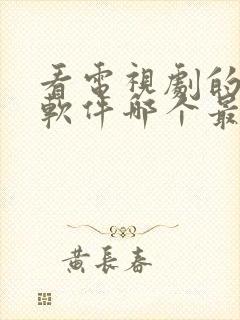 看電視劇的
軟件哪个最
黃長春